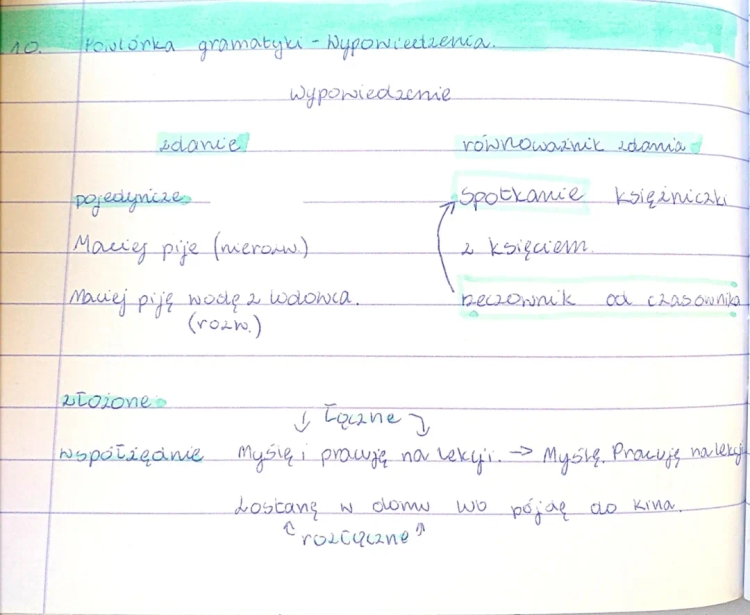 10. Powtórka gramatyki - Wypowiedzenia.
Wypowiedzenie
zdanie równoważnik zdania
pojedyncze spotkanie księżniczki
Maciej pije (nierozw.) z księciem.
Maciej piję wodę z lodowca. rzeczownik od czasownika
(rozw.)
złożone
łączne
współrzędnie Myślę i pracuję na lekcji. → Myślę. Pracuję na lekcji
Zostanę w domu lub pójdę do kina.
rozłączne